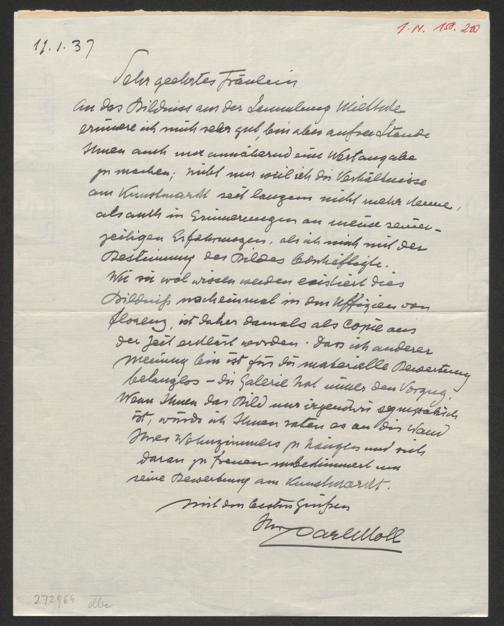 I.N. 158.280
11.1.37
Sehr geehrtes Fräulein
An das Bildniss aus der Sammlung Miethke
erinnere ich mich sehr gut, bin aber außer Stande
Ihnen auch nur annähernd eine Wertangabe
zu machen; nicht nur weil ich die Verhältnisse
am Kunstmarkt seit langem nicht mehr kenne,
als auch in Erinnerungen an meine seiner-
zeitigen Erfahrungen, als ich mich mit der
Bestimmung des Bildes beschäftigte.
Wie sie wol wissen werden existiert dies
Bildniß nocheinmal in den Uffizien von
Florenz, ist daher damals als Copie aus
der Zeit erklärt worden. Dass ich anderer
Meinung bin ist für die materielle Bewertung
belanglos – die Galerie hat immer den Vorzug.
Wenn Ihnen das Bild nur irgendwie sympathisch
ist, würde ich Ihnen raten es an die Wand
Ihres Wohnzimmers zu hängen und sich
daran zu freuen unbekümmert um
seine Bewertung am Kunstmarkt.
Mit den besten Grüßen
Ihr Carl Moll
272964